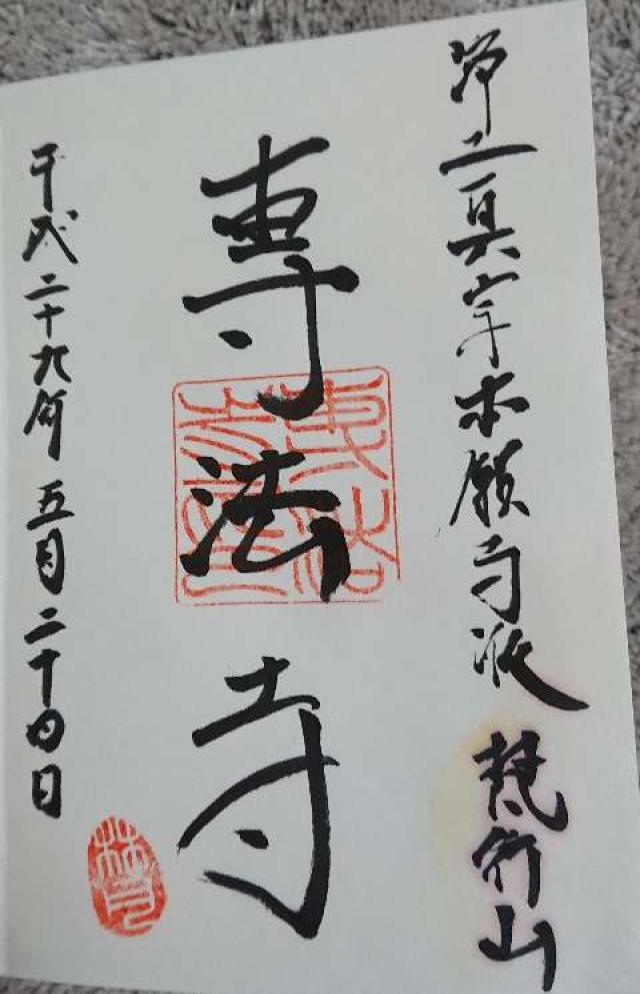 浄土真宗本願寺派 梵行山
專法寺
平成二十九年五月二十四日